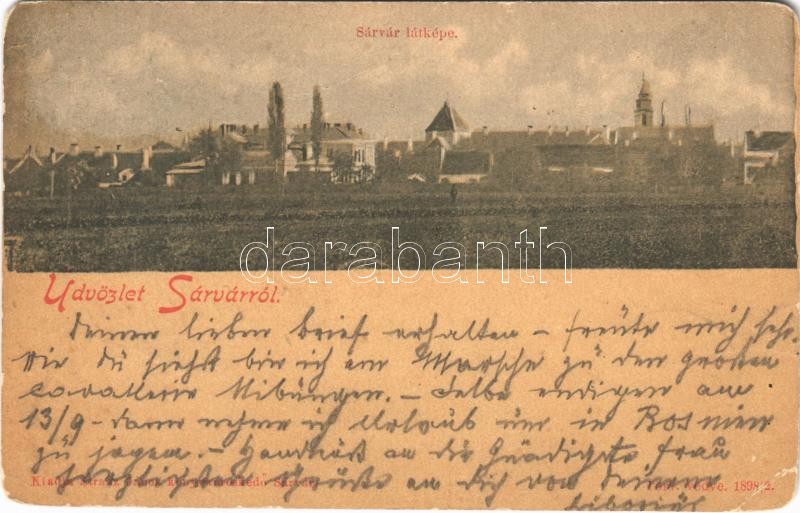 Sárvár látképe.
darabanth
Üdvözlet Sárvárról.
Deinen lieben brief erhalten – freute mich sehr.
Wie du siehst bin ich am Marsche zu den großen
cavallerie Übungen. – Selbe endigen am
13/9 – dann nehme ich Urlaub um in Bosnien
zu jagen. – Handkuß an die Gnädigste Frau
herzlichste Grüße an dich von deinem
Kiadja Sárvár. 1898/2.